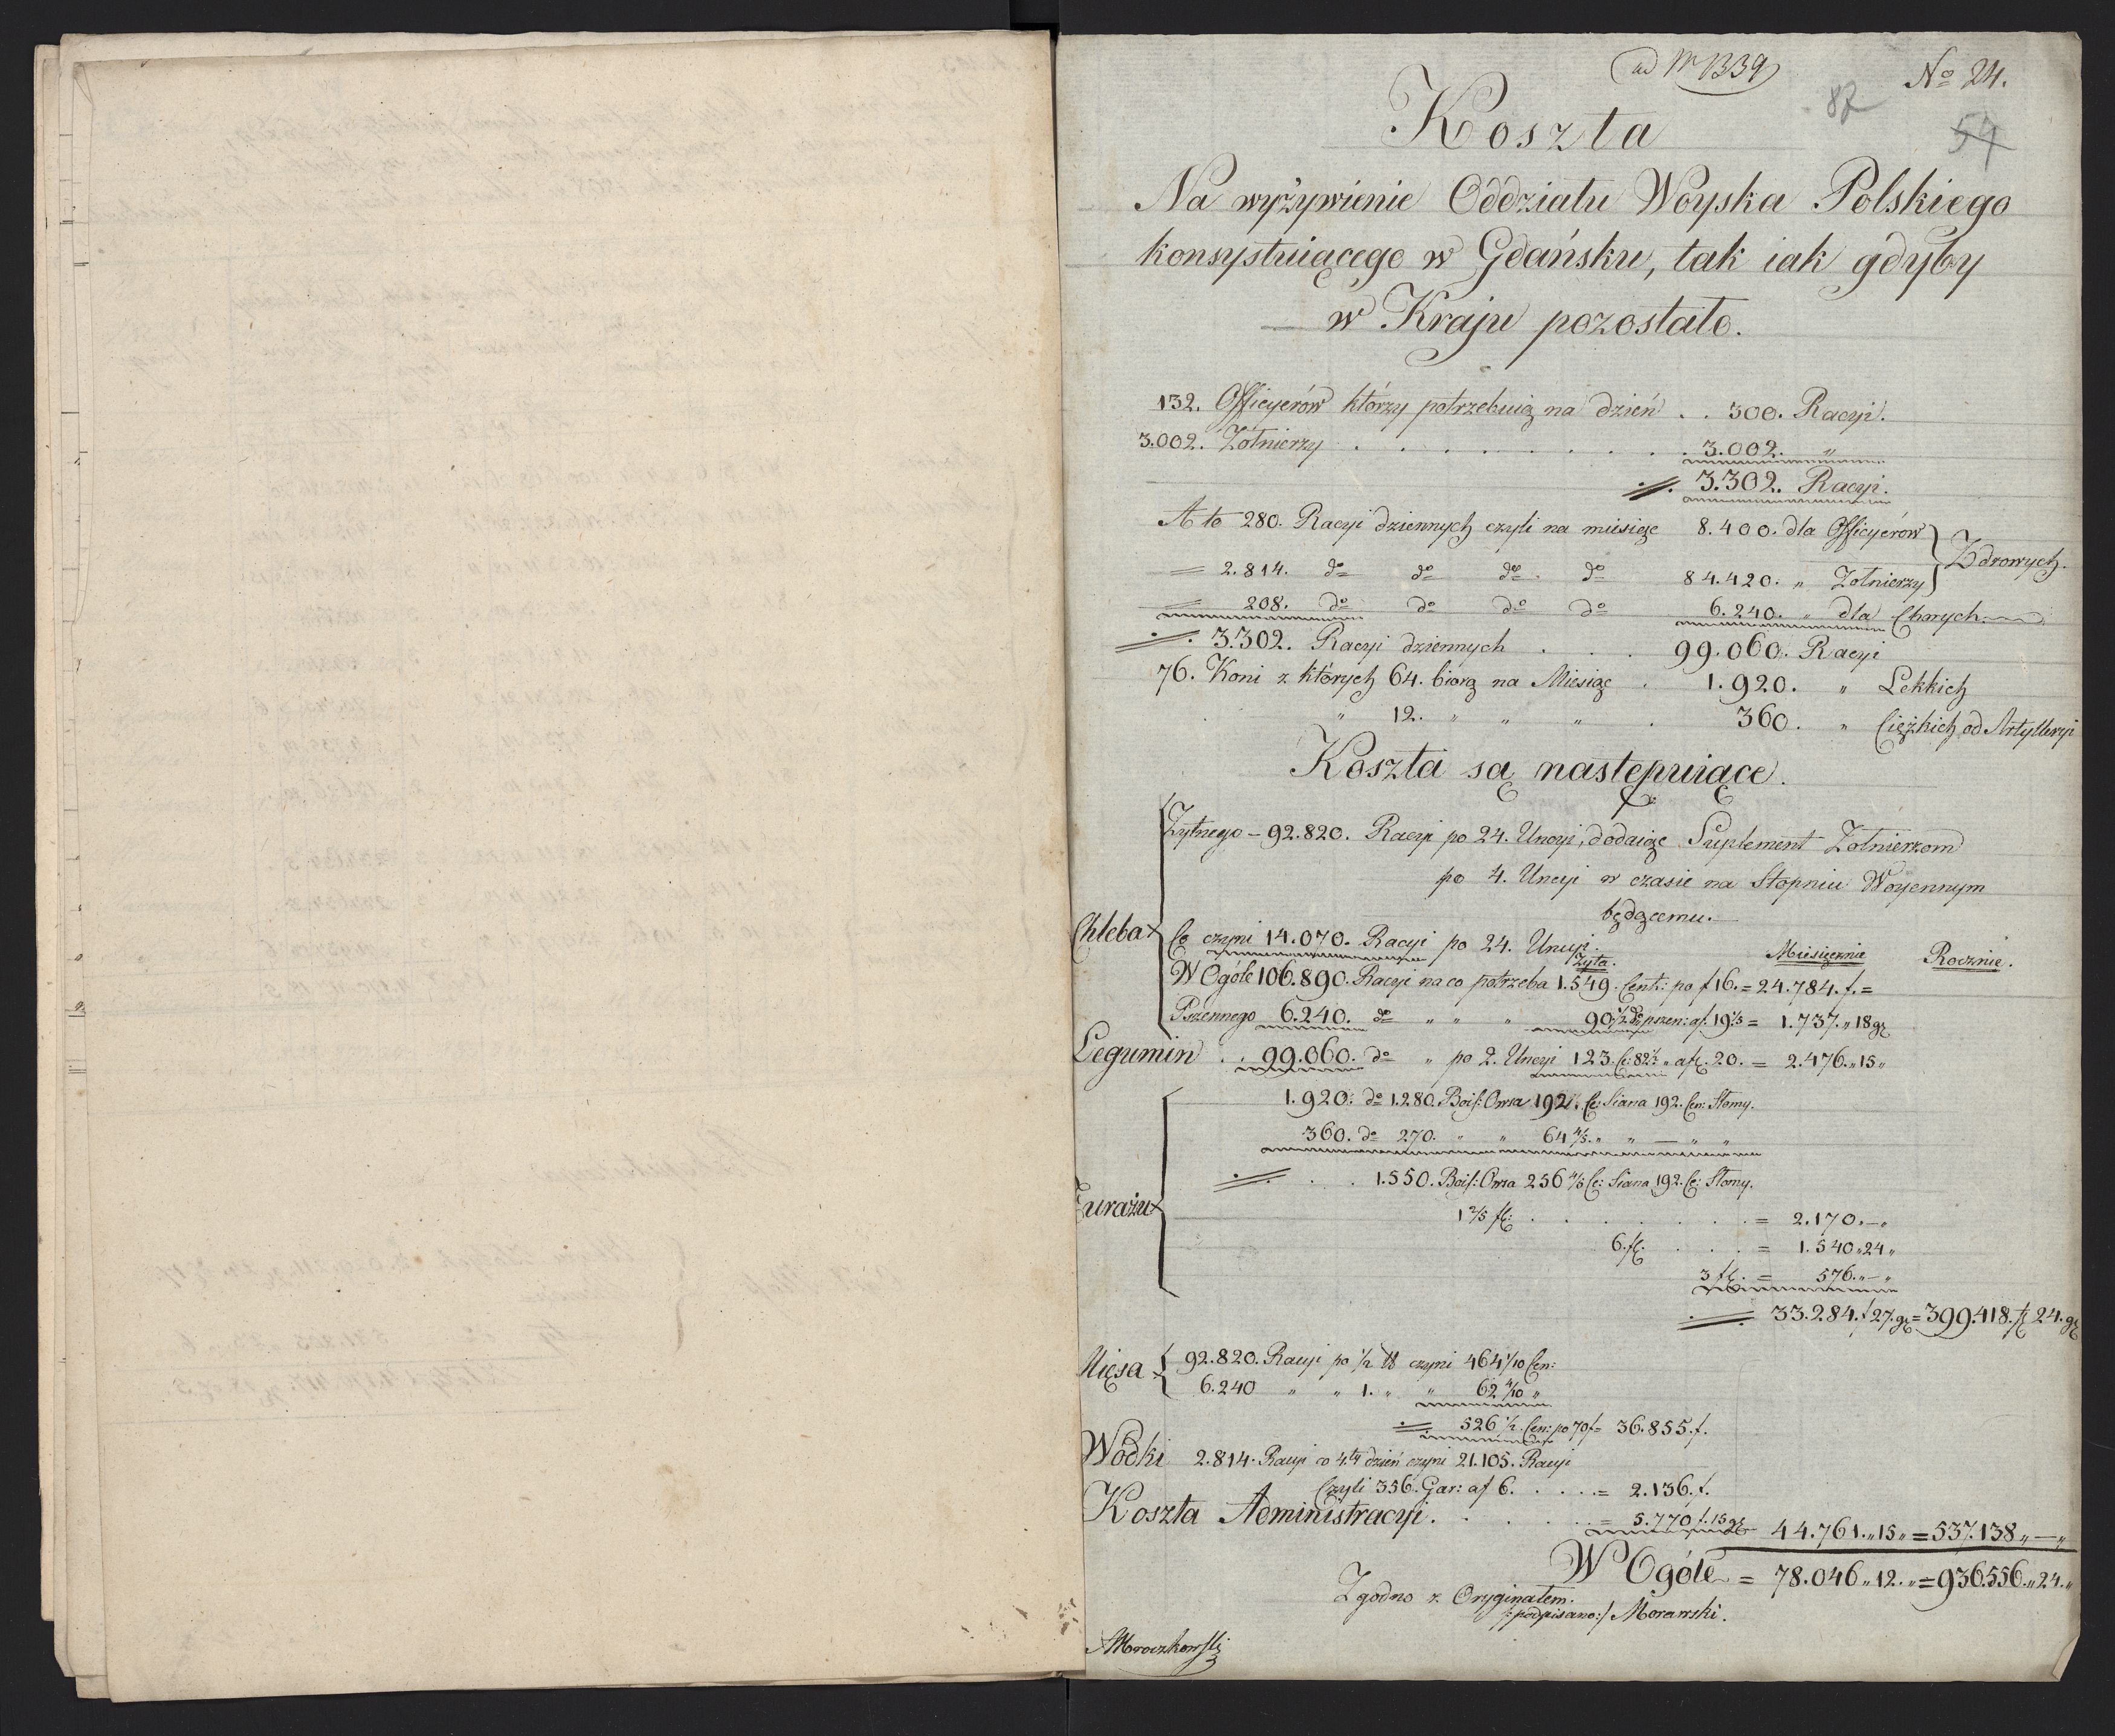 ad Nr 1339
No 24.
82
54
Koszta
Na wyżywienie Oddziału Woyska Polskiego
konsystuiącego w Gdańsku, tak iak gdyby
w Kraju pozostało.
132. Officyerów którzy potrzebuią na dzień . . 300. Racyi.
3.002. Żołnierzy . . . . . . . . . 3.002. "
3.302. Racyi.
A to 280. Racyi dziennych czyli na miesiąc 8.400. dla Officyerów
= 2.814. do do do do 84.420. " Żołnierzy } Zdrowych.
= 208. do do do do 6.240. " dla Chorych.
3.302. Racyi dziennych . . . 99.060. Racyi
76. Koni z których 64. biorą na Miesiąc . 1.920. " Lekkich
" 12. " " " . 360. " Ciężkich od Artylleryi
Koszta są następuiące.
Żytnego – 92.820. Racyi po 24. Uncyi, dodaiąc Suplement Żołnierzom
po 4. Uncyi w czasie na Stopniu Woyennym
będącemu.
Chleba
Co czyni 14.070. Racyi po 24. Uncyi.
Miesięcznie Rocznie.
Żyta.
W Ogóle 106.890. Racyi na co potrzeba 1.549. Cent: po f 16. = 24.784. f. =
Pszennego 6.240. do " " " 90 1/2 do pszen: af. 19 1/5 = 1.737. " 18 gr
Legumin . . 99.060. do " po 2. Uncyi 123. C: 82 1/2 " a fl. 20. = 2.476. " 15 "
1.920. do 1.280. Bois: Owsa 192. Ce: Siana 192. Cen: Słomy.
360. do 270. " " 64 4/5. " " — " "
. . 1.550. Bois: Owsa 256 4/5 Ce: Siana 192. Ce: Słomy.
Furażu
1 2/5 fl: . . . . . . . = 2.170. — "
6. fl. . . . = 1.540 " 24 "
3 fl. = 576. " — "
33.284. f 27. gr = 399.418. fl 24. gr
Mięsa
92.820. Racyi po 1/2 ℔ czyni 464 1/10 Cen:
6.240 " " 1. " " 62 4/10 "
526 1/2. Cen: po 70 f = 36.855. f.
Wódki 2.814. Racyi co 4.ty dzień czyni 21.105. Racyi
Czyli 356. Gar: a f 6. . . . . = 2.136. f.
Koszta Administracyi. . . . . . = 5.770 f. 15 gr 44.761. " 15 " = 537.138 " — "
W Ogóle = 78.046 " 12. " = 936.556. " 24. "
Zgodno z Oryginałem.
/:podpisano:/ Morawski.
AMroczkowski